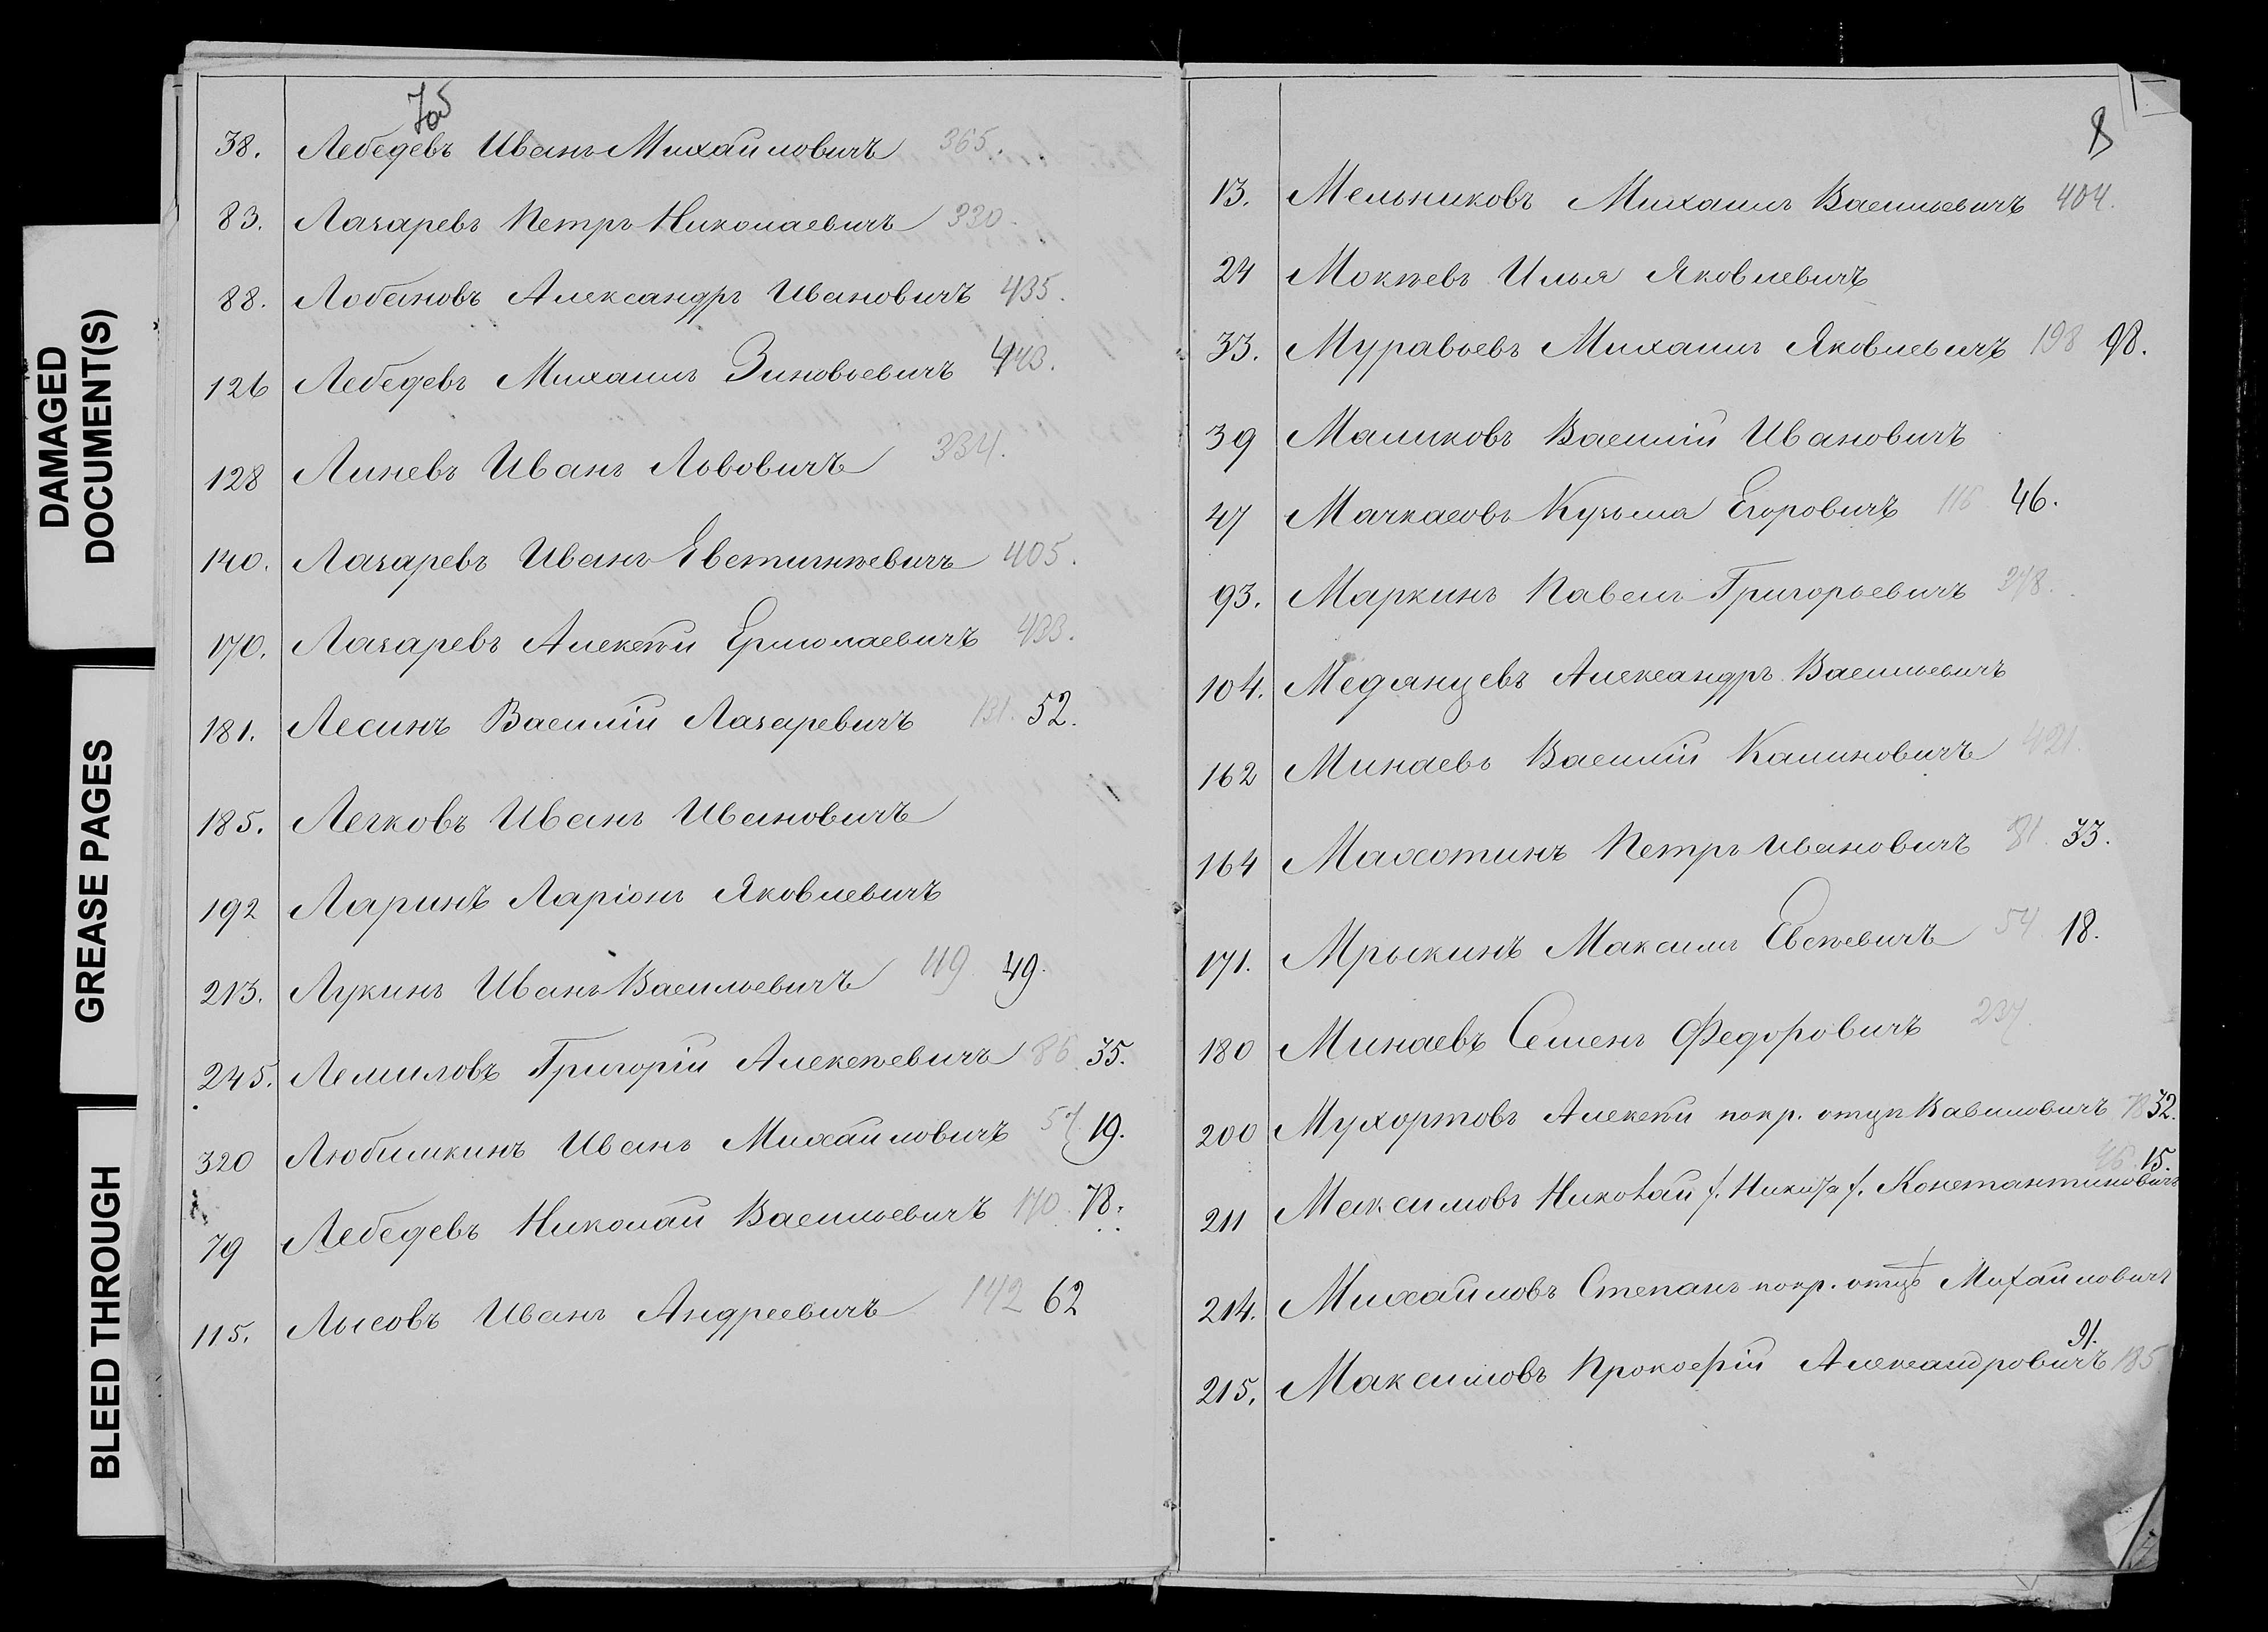 DAMAGED
DOCUMENT(S)
GREASE PAGES
BLEED THROUGH
7об
38. Лебедевъ Иванъ Михайловичъ 365.
83. Лазаревъ Петръ Николаевичъ 330.
88. Лобановъ Александръ Ивановичъ 435.
126 Лебедевъ Михаилъ Зиновьевичъ 443.
128 Линевъ Иванъ Львовичъ 334.
140. Лазаревъ Иванъ Евстигнѣевичъ 405.
170. Лазаревъ Алексѣй Ермолаевичъ 433.
181. Лесинъ Василій Лазаревичъ 131. 52.
185. Легковъ Иванъ Ивановичъ
192 Ларинъ Ларіонъ Яковлевичъ
213. Лукинъ Иванъ Васильевичъ 119 49.
245. Лемиловъ Григорій Алексѣевичъ 86 35.
320 Любимкинъ Иванъ Михайловичъ 57. 19.
79 Лебедевъ Николай Васильевичъ 170. 78.
115. Лысовъ Иванъ Андреевичъ 142 62
8
13. Мельниковъ Михаилъ Васильевичъ 404.
24 Мокѣевъ Илья Яковлевичъ
33. Муравьевъ Михаилъ Яковлевичъ 198 98.
39 Маликовъ Василій Ивановичъ
47 Мачкасовъ Кузьма Егоровичъ 116 46.
93. Маркинъ Павелъ Григорьевичъ 278.
104. Медянцевъ Александръ Васильевичъ
162 Минаевъ Василій Калиновичъ 421.
164 Махотинъ Петръ Ивановичъ 81. 33.
171. Мрыкинъ Максимъ Евсѣевичъ 54 18.
180 Минаевъ Семенъ Федоровичъ 237
200 Мухортовъ Алексѣй покр. отцу Вавиловичъ 78 32.
46 15.
211 Максимовъ Николай f. Никита f. Константиновичъ
214. Михайловъ Степанъ покр. отцѣ Михайловичъ
91.
215. Максимовъ Прокофій Александровичъ 185